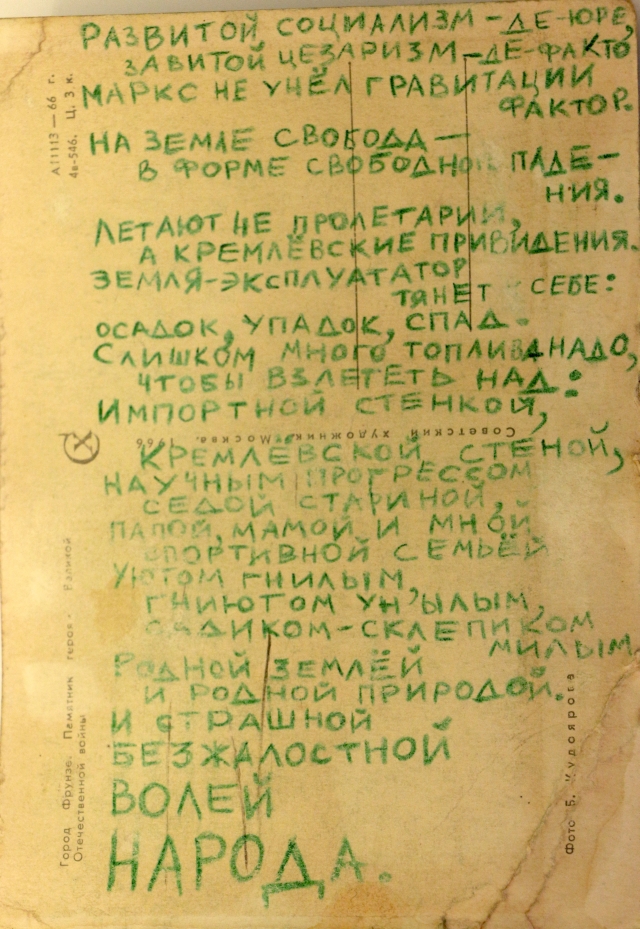 РАЗВИТОЙ СОЦИАЛИЗМ – ДЕ-ЮРЕ,
ЗАВИТОЙ ЦЕЗАРИЗМ – ДЕ-ФАКТО
МАРКС НЕ УЧЁЛ ГРАВИТАЦИИ
ФАКТОР.
НА ЗЕМЛЕ СВОБОДА —
В ФОРМЕ СВОБОДНОГО ПАДЕ–
НИЯ.
ЛЕТАЮТ НЕ ПРОЛЕТАРИИ,
А КРЕМЛЁВСКИЕ ПРИВИДЕНИЯ.
ЗЕМЛЯ-ЭКСПЛУАТАТОР
ТЯНЕТ К СЕБЕ:
ОСАДОК, УПАДОК, СПАД.
СЛИШКОМ МНОГО ТОПЛИВА НАДО,
ЧТОБЫ ВЗЛЕТЕТЬ НАД:
ИМПОРТНОЙ СТЕНКОЙ,
КРЕМЛЁВСКОЙ СТЕНОЙ,
НАУЧНЫМ ПРОГРЕССОМ
СЕДОЙ СТАРИНОЙ,
ПАПОЙ, МАМОЙ И МНОЙ
СПОРТИВНОЙ СЕМЬЁЙ
УЮТОМ ГНИЛЫМ,
ГНИЮТОМ УН'ЫЛЫМ,
САДИКОМ-СКЛЕПИКОМ
МИЛЫМ
РОДНОЙ ЗЕМЛЁЙ
И РОДНОЙ ПРИРОДОЙ.
И СТРАШНОЙ
БЕЗЖАЛОСТНОЙ
ВОЛЕЙ
НАРОДА.
А11113—66 г.
4в-546. Ц. 3 к.
Советский художник. Москва. 1966
Город Фрунзе. Памятник героям Великой
Отечественной войны
Фото Б. Кудоярова